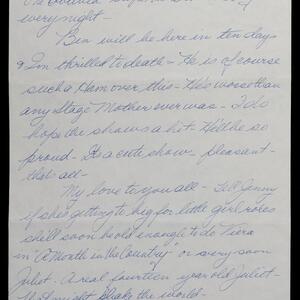 every night -
Ben will be here in ten days
& I'm thrilled to death - He is of course
such a Ham over this - He's worse than
any Stage Mother ever was - I do
hope the show's a hit - He'll be so
proud - It's a cute show - pleasant -
that's all -
My love to you all - Tell Jenny
if she's getting too big for little girl roles
she'll soon be old enough to do Vera
in "A Month in the Country" or very soon
Juliet - A real fourteen year old Juliet -
That might shake the world -